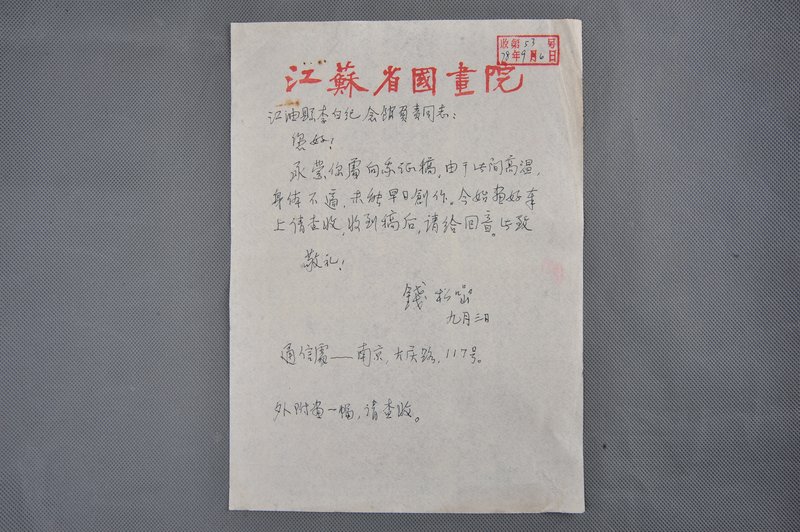 收第53号
78年9月6日
江蘇省國畫院
江油县李白纪念馆负责同志:
您好!
承蒙你處向东征稿,由于此间高温,
身体不适,未能早日創作。今始畫好奉
上请查收,收到稿后,请给回音。此致
敬礼!
錢松喦
九月三日
通信處——南京,大庆路,117号。
外附畫一幅,请查收。